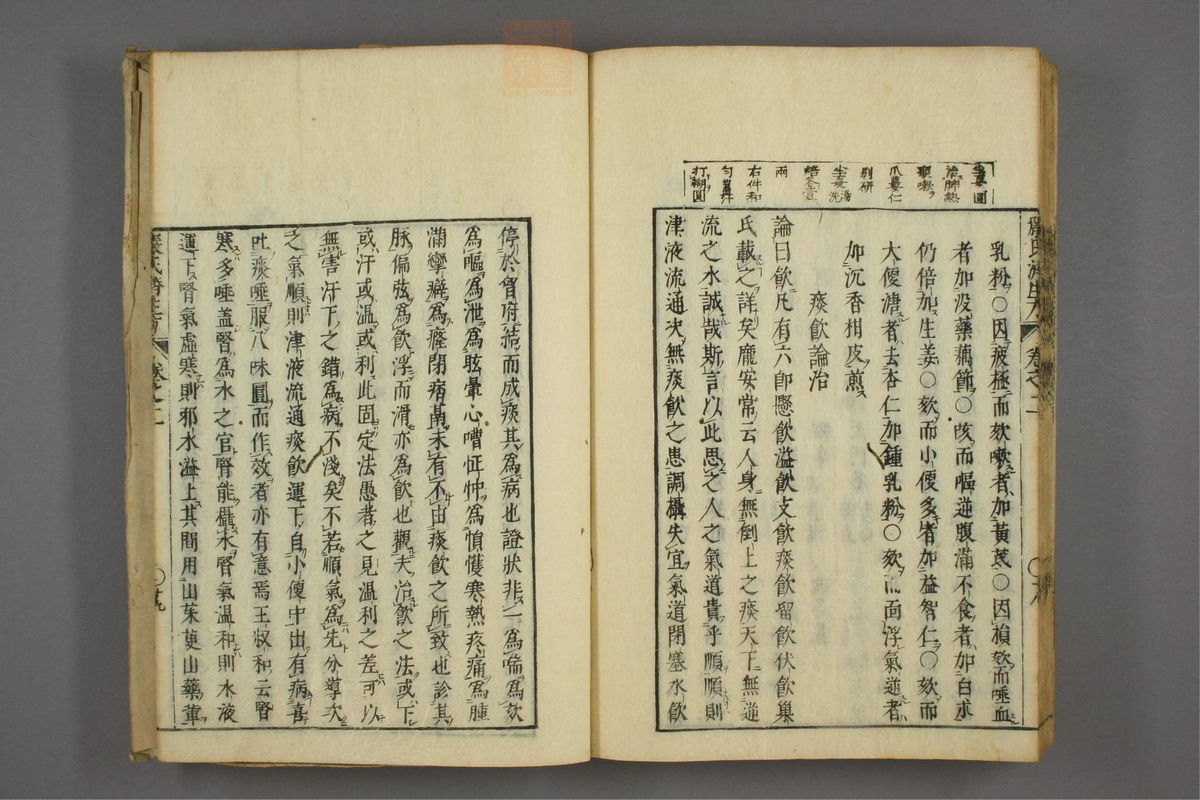 治肺熱
咳嗽
爪蔞仁
別研
兩
右件和
打糊圓
乳粉○因疲極而欬嗽者加黃芪○因損欬而唾血
者加没藥藕節○咳而嘔逆腹滿不食者加白朮
仍倍加生姜○欬而小便多者加益智仁○欬而
大便溏者去杏仁加鍾乳粉○欬而面浮氣逆者
加沉香柑皮煎
痰飲論治
論曰飲凡有六即懸飲溢飲支飲痰飲留飲伏飲巢
氏載之詳矣龐安常云人身無倒上之痰天下無逆
流之水誠哉斯言以此思之人之氣道貴乎順順則
津液流通决無痰飲之患調攝失宜氣道閉塞水飲
卷之二
停於胷府結而成痰其為病也證狀非一為喘為欬
為嘔為泄為眩暈心嘈怔忡為慣㦬寒熱疼痛為腫
滿攣癖為癃閉痞鬲未有不由痰飲之所致也診其
脉偏弦為飲浮而滑亦為飲也觀夫治飲之法或下
或汗或温或利此固定法愚者之見温利之差可以
無害汗下之錯為病不淺矣不若順氣為先分導次
之氣順則津液流通痰飲運下自小便中出有病喜
吐痰唾服八味圓而作效者亦有意焉王叔和云腎
寒多唾盖腎為水之官腎能攝水腎氣温和則水液
運下腎氣虛寒則邪水溢上其間用山茱萸山藥軰
嚴氏濟生方 卷之二